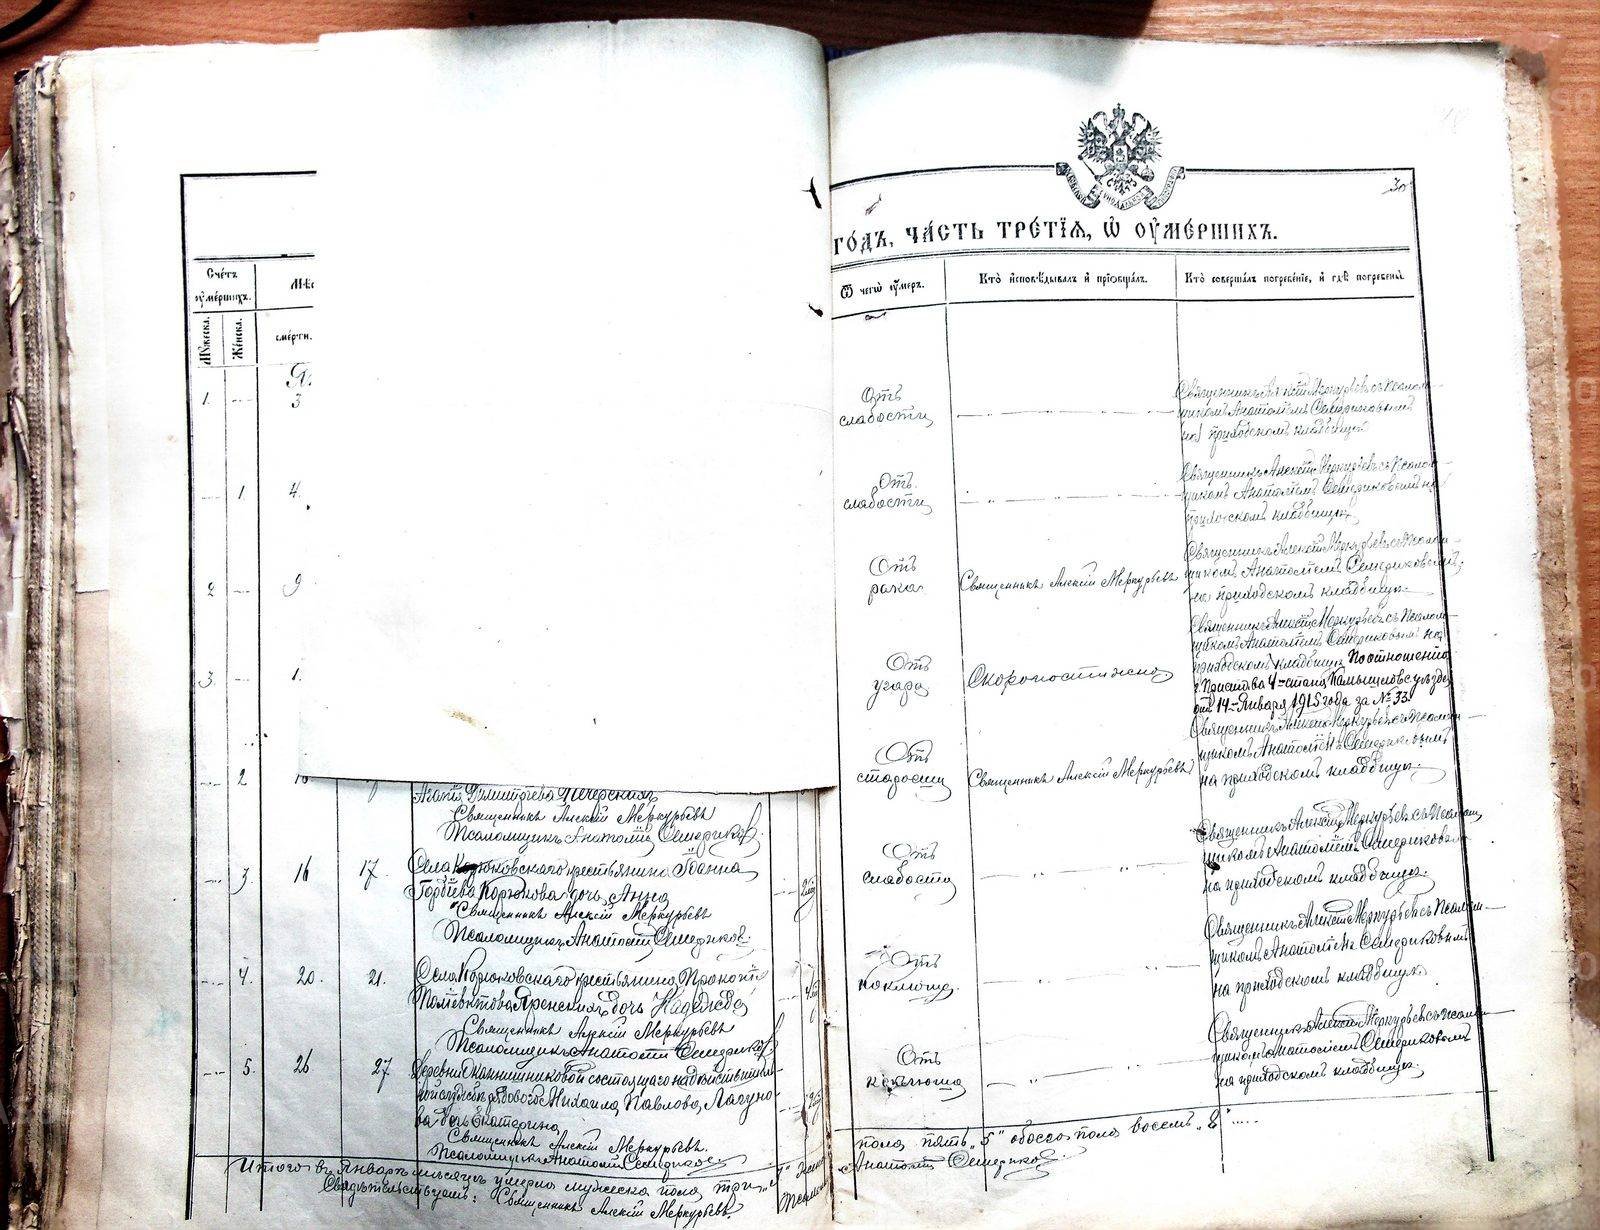 30
годъ, часть третїѧ, ѿ оумершихъ.
Счетъ оумершихъ.
Мужеска.
Женска.
смерти.
Ѿ чегѡ оумеръ.
Кто исповѣдывалъ и прїобщалъ.
Кто совершалъ погребенїе, и гдѣ погребены.
1. 3
Отъ
слабости
Священникъ Алексій Меркурьевъ съ псалом-
щикомъ Анатоліемъ Семериковымъ
на приходскомъ кладбищѣ
1 4.
Отъ
слабости
Священникъ Алексій Меркурьевъ съ псалом-
щикомъ Анатоліемъ Семериковымъ на
приходскомъ кладбищѣ
2 9
Отъ
рака
Священникъ Алексій Меркурьевъ
Священникъ Алексій Меркурьевъ съ псалом-
щикомъ Анатоліемъ Семериковымъ
на приходскомъ кладбищѣ.
3. 1.
Отъ
угара
Скоропостижно
Священникъ Алексій Меркурьевъ съ псалом-
щикомъ Анатоліемъ Семериковымъ на
приходскомъ кладбищѣ По отношенію
г. Пристава 4-стана Камышловс. уѣзда
отъ 14-Января 1915 года за № 33.
2
Отъ
старости
Священникъ Алексій Меркурьевъ
Священникъ Алексій Меркурьевъ съ псалом-
щикомъ Анатоліемъ Семериковымъ
на приходскомъ кладбищѣ.
Священникъ Алексій Меркурьевъ
Псаломщикъ Анатолій Семериковъ.
3. 16 17.
Села Корюковскаго крестьянина Іоанна
Корюкова дочь Анна
Священникъ Алексій Меркурьевъ
Псаломщикъ Анатолій Семериковъ.
Отъ
слабости
Священникъ Алексій Меркурьевъ съ псалом-
щикомъ Анатоліемъ Семериковымъ
на приходскомъ кладбищѣ.
4. 20. 21.
Села Корюковскаго крестьянина Прокопія
дочь Надежда
Священникъ Алексій Меркурьевъ
Псаломщикъ Анатолій Семериковъ
Отъ
коклюша.
Священникъ Алексій Меркурьевъ съ псалом-
щикомъ Анатоліемъ Семериковымъ
на приходскомъ кладбищѣ
5. 26 27
Деревни состоящаго на дѣйствитель-
ной службѣ рядового Михаила Павлова Лагуно-
ва дочь Екатерина
Священникъ Алексій Меркурьевъ.
Псаломщикъ Анатолій Семериковъ.
Отъ
коклюша
Священникъ Алексій Меркурьевъ съ псалом-
щикомъ Анатоліемъ Семериковымъ
на приходскомъ кладбищѣ.
Итого въ Январѣ мѣсяцѣ умерло мужеска пола три
пола пять „5" обоего пола восемь „8"
Свидѣтельствуютъ: Священникъ Алексій Меркурьевъ.
Анатолій Семериковъ.